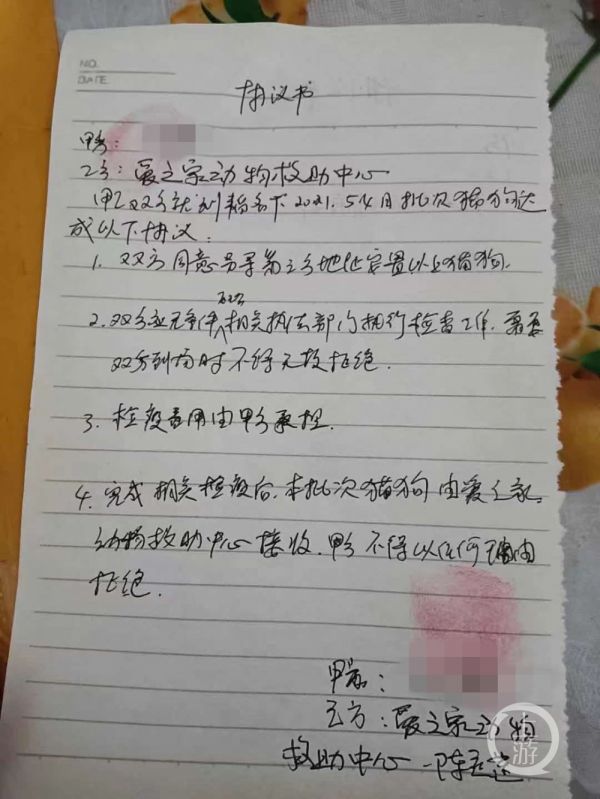 NO.
DATE
协议书
甲方：
乙方：爱之家动物救助中心
甲乙双方就 名下2021.5.4日批次猫狗达
成以下协议：
1. 双方同意另寻第三方地址安置以上猫狗.
2. 双方 配合 相关执法部门执行检查工作.需要
双方到场时不得无故拒绝.
3. 检疫费用由甲方承担.
4. 完成相关检疫后.本批次猫狗由爱之家
动物救助中心接收.甲方不得以任何理由
拒绝.
甲方：
乙方：爱之家动物
救助中心 陈
游